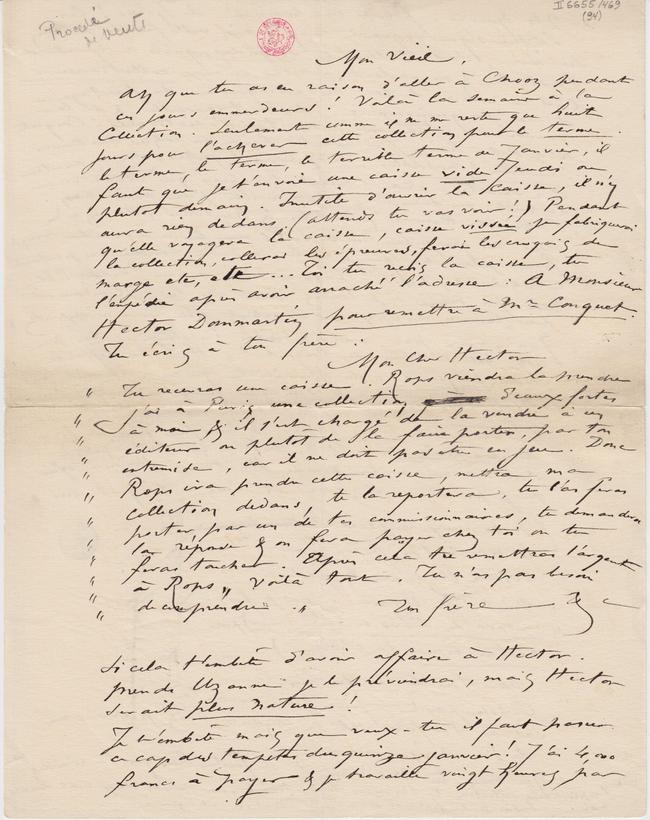 II 6655/469
(94)
Procédé
de vente
Mon Vieil,
Ah que tu as eu raison d'aller à Chooz pendant
ces jours emmerdeurs ! Voilà la semaine à la
Collection. Seulement comme il ne me reste que huit
jours pour l'achever cette collection pour le terme
le terme, le terme, le terrible terme de Janvier, il
faut que je t'envoie une caisse vide Jeudi ou
plutot demain. Inutile d'ouvrir la Caisse, il n'y
aura rien dedans (attends tu vas voir !) Pendant
qu'elle voyagera la caisse, caisse vissée je fabriquerai
la collection, collerai les épreuves, ferai les croquis de
marge etc, etc ... Toi tu reçois la caisse, tu
l'expédie après avoir arraché l'adresse : A Monsieur
Hector Dommartin pour remettre à Mr Conquet.
Tu écris à ton frère :
Mon Cher Hector
" Tu recevras une caisse. Rops viendra la prendre
" J'ai à Paris une collection Eaux fortes
" à moi & il s'est chargé de la vendre à un
" éditeur ou plutot de la faire porter, par ton
" entremise, car il ne doit pas être en jeu. Donc
" Rops ira prendre cette caisse, mettra ma
" collection dedans, te la reportera, tu l'as feras
" porter par un de tes commissionnaires, tu demandera
" la réponse & on fera payer chez toi ou tu
" feras toucher. Après cela tu remettras l'argent
" à Rops, voilà tout. Tu n'as pas besoin
" de comprendre. " Ton frère
Si cela t'embête d'avoir affaire à Hector.
prends Uzanne je le préviendrai, mais Hector
serait plus nature !
Je t'embête mais que veux-tu il faut passer
ce cap des tempêtes du quinze janvier ! J'ai 4,000
francs à payer & je travaille vingt heures par